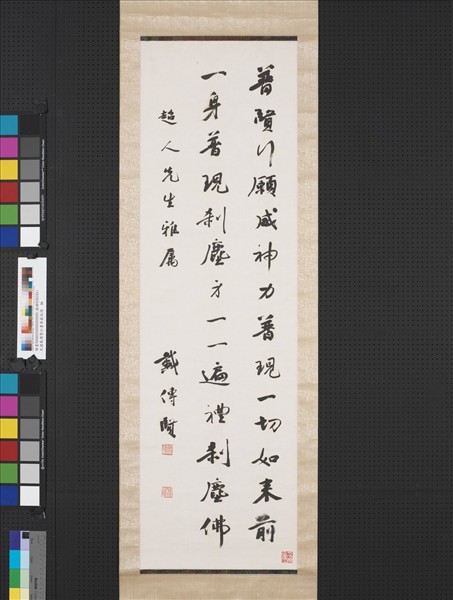 普賢行願威神力普現一切如来前
一身普現刹塵方一一遍禮刹塵佛
超人先生雅属
戴傳賢